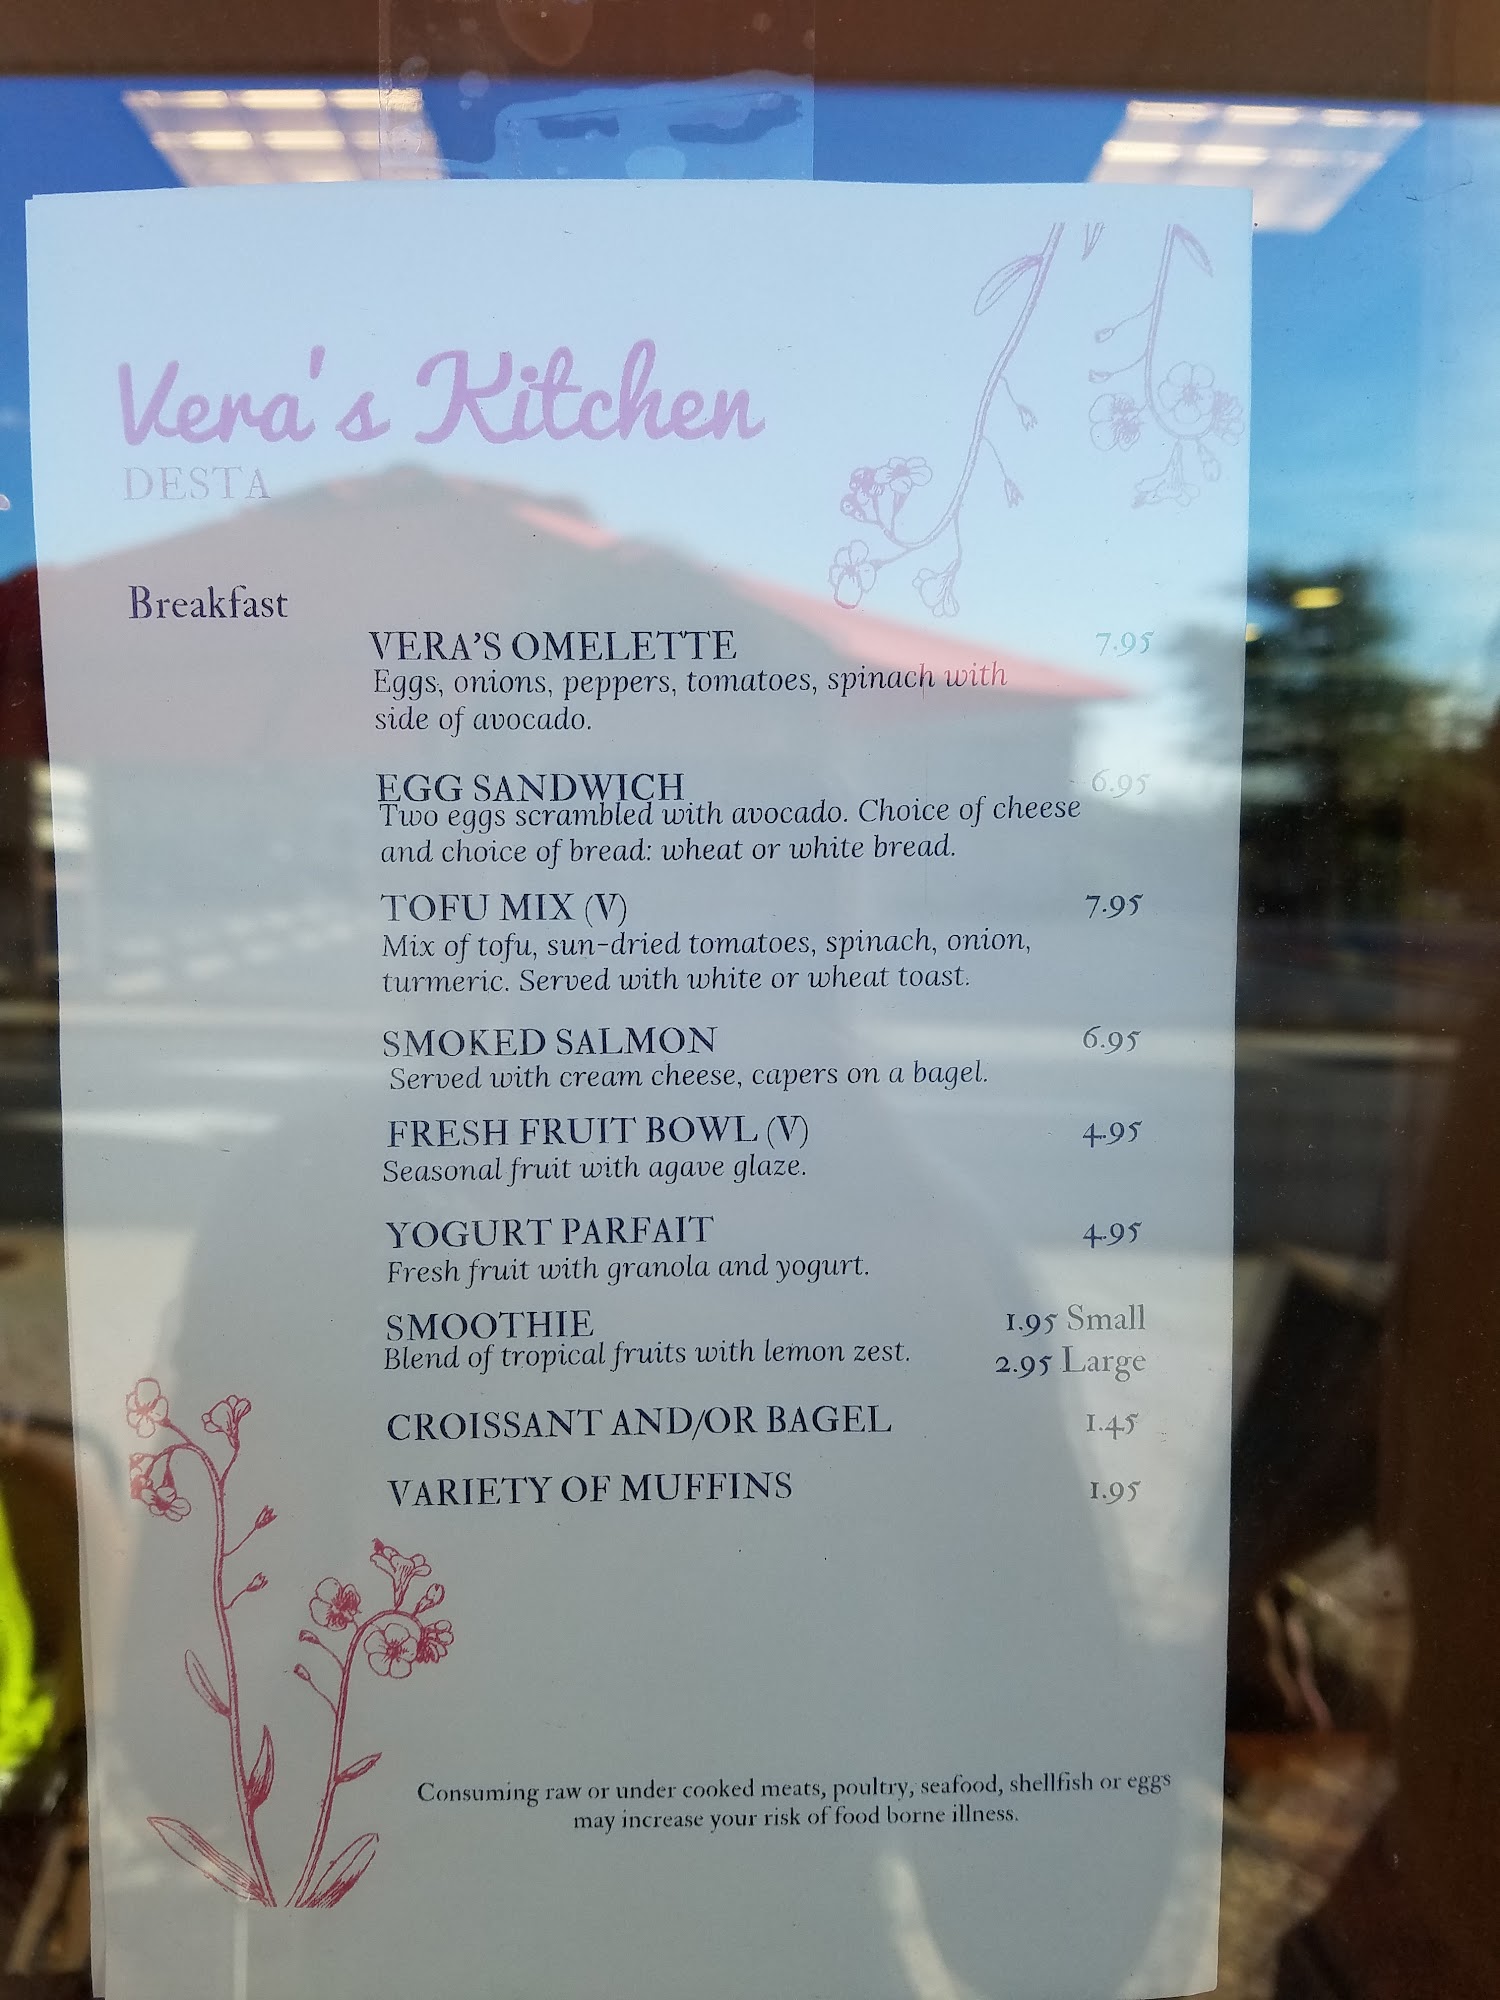 Vera's Kitchen
DESTA
Breakfast
VERA'S OMELETTE 7.95
Eggs, onions, peppers, tomatoes, spinach with
side of avocado.
EGG SANDWICH 6.95
Two eggs scrambled with avocado. Choice of cheese
and choice of bread: wheat or white bread.
TOFU MIX (V) 7.95
Mix of tofu, sun-dried tomatoes, spinach, onion,
turmeric. Served with white or wheat toast.
SMOKED SALMON 6.95
Served with cream cheese, capers on a bagel.
FRESH FRUIT BOWL (V) 4.95
Seasonal fruit with agave glaze.
YOGURT PARFAIT 4.95
Fresh fruit with granola and yogurt.
SMOOTHIE 1.95 Small
Blend of tropical fruits with lemon zest. 2.95 Large
CROISSANT AND/OR BAGEL 1.45
VARIETY OF MUFFINS 1.95
Consuming raw or under cooked meats, poultry, seafood, shellfish or eggs
may increase your risk of food borne illness.